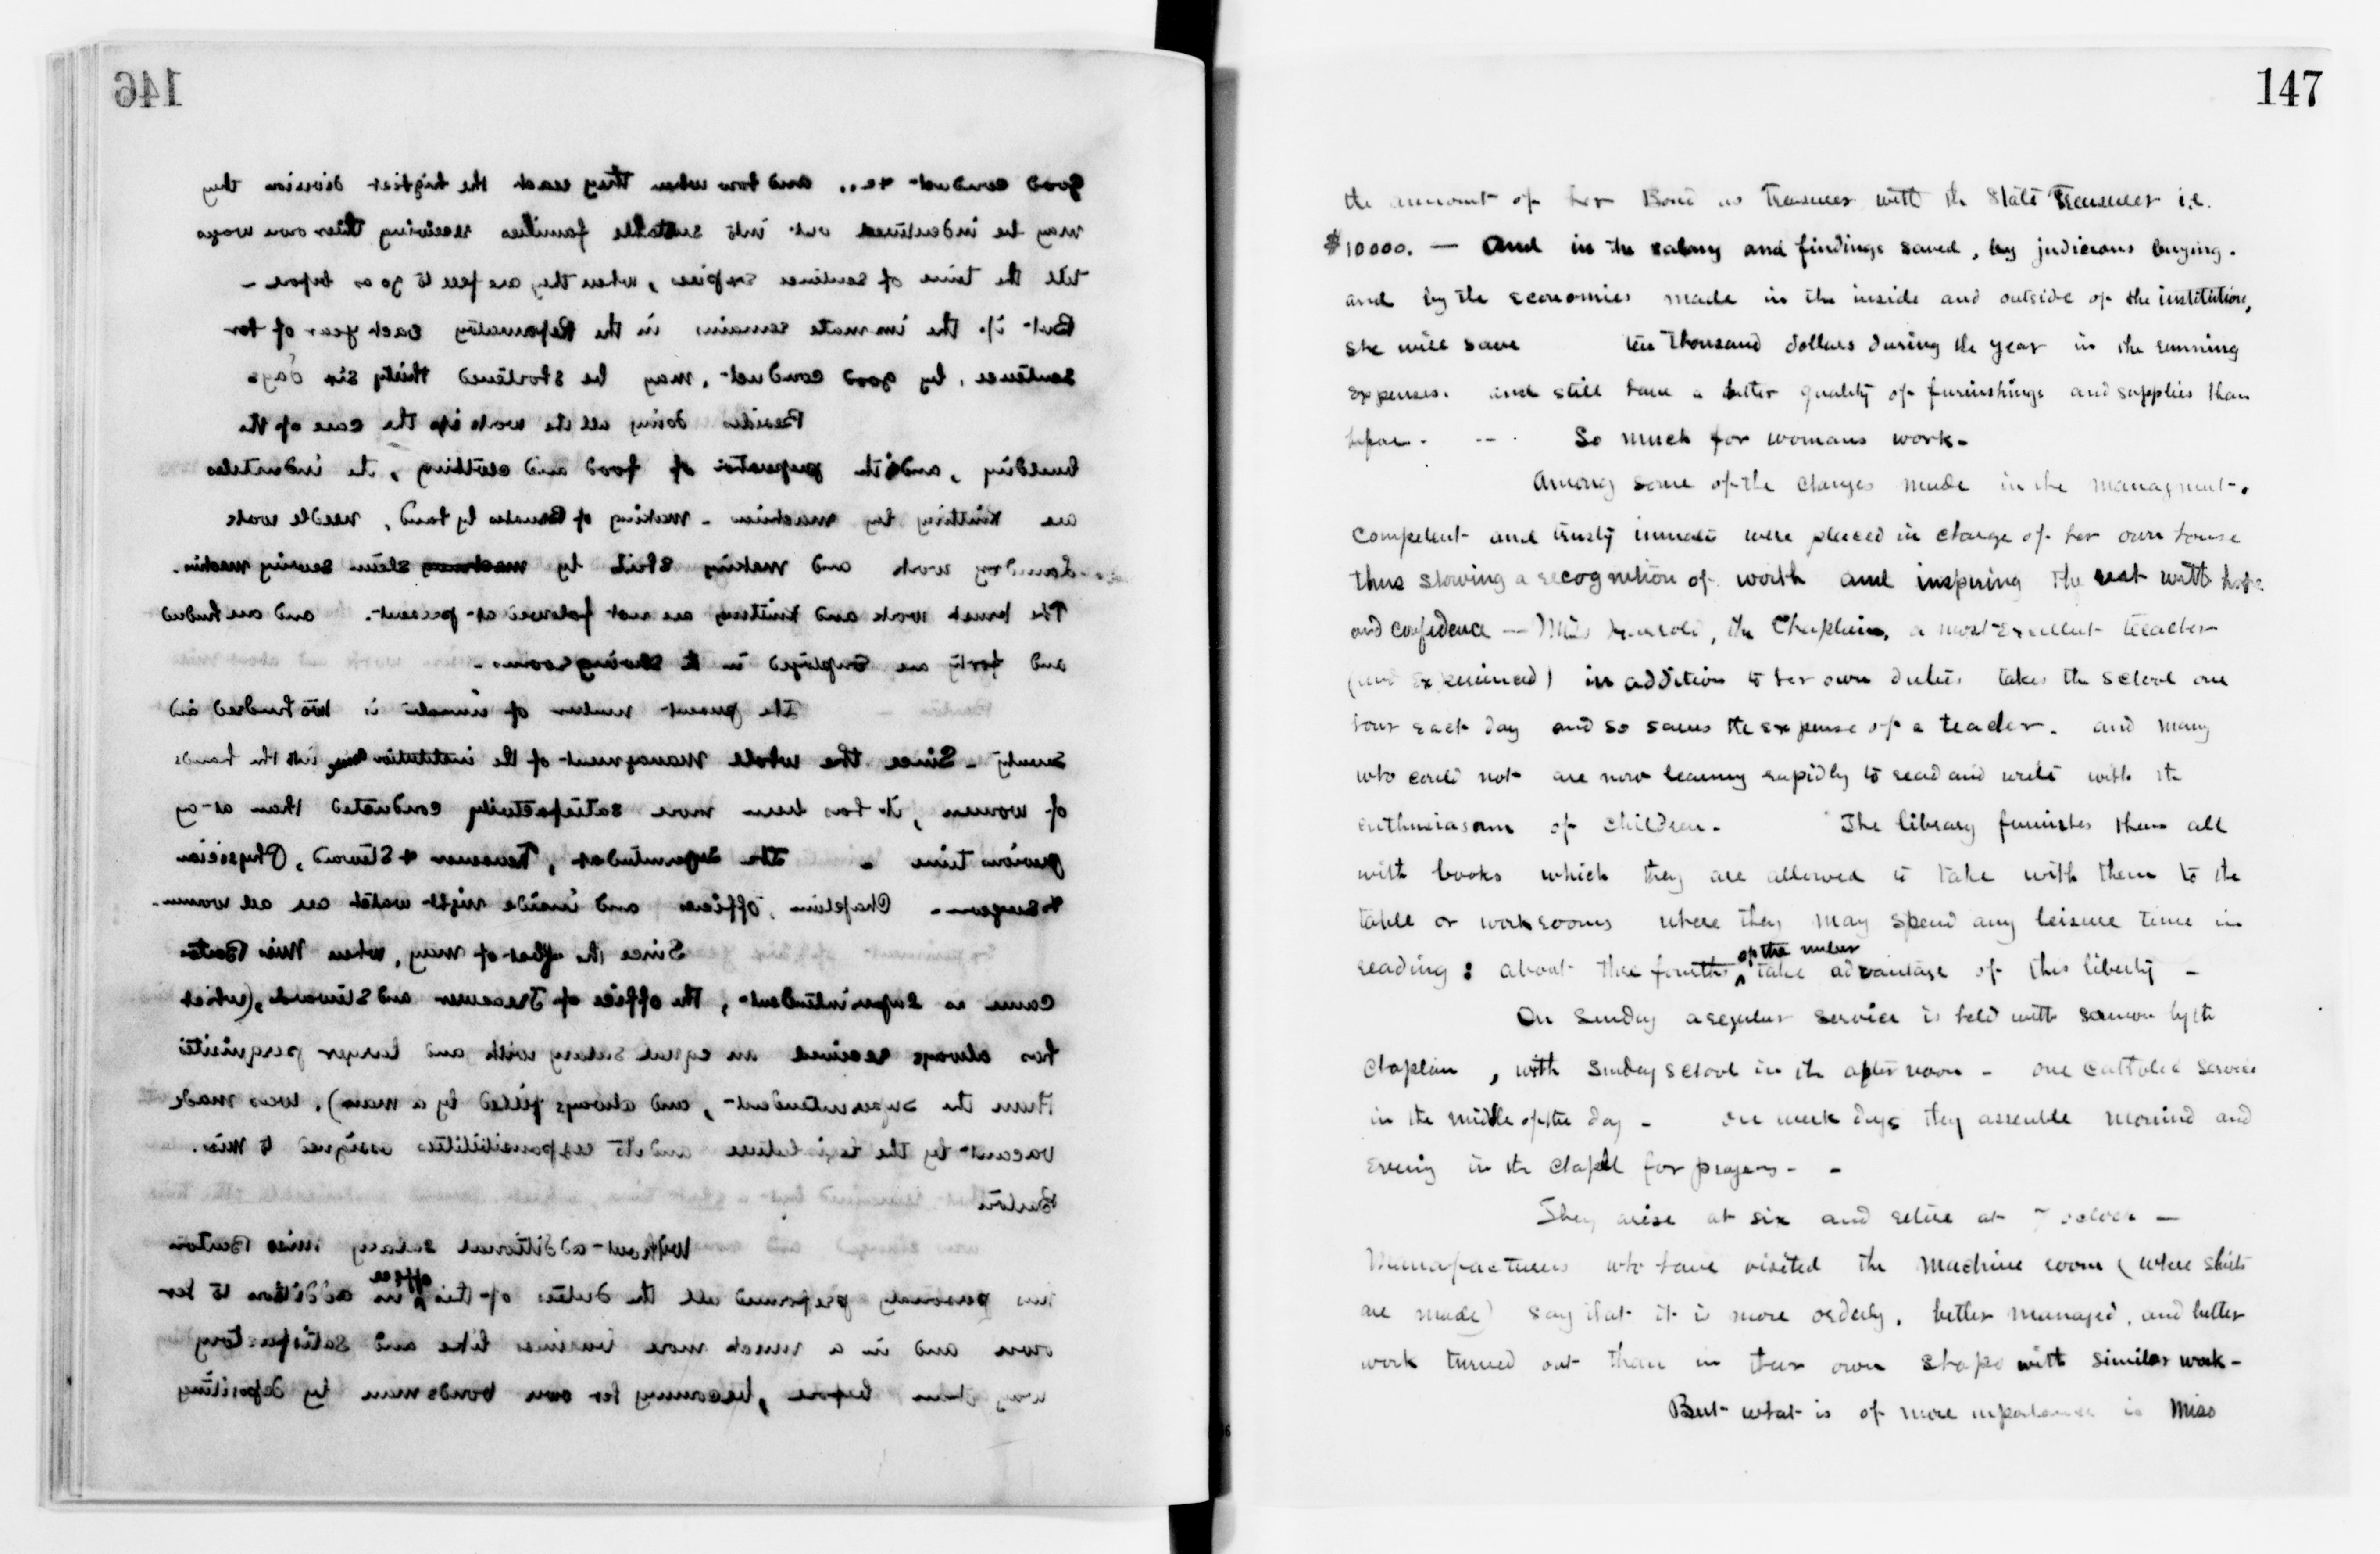 146
good conduct &c... and how when they reach the highest division they
may be indentured out into suitable families receiving thier own wages
till the time of sentence expires, when they are free to go as before -
But if the inmate remains in the Reformatory each year of her
sentence, by good conduct, may be shortened thirty six days
Besides doing all the work its the care of the
building, and the preperation of food and clothing, the industries
are Knitting by machine - making of Brushes by hand, needle work
Laundry work and making shirts by steam sewing machine.
The brush work and Knitting are not followed at present. and one hundred
and forty are employed in the sewing rooms -
The present number of inmates is two hundred and
seventy - Since the whole managment of the institution into the hands
of women, it has been more satisfactorily conducted than at any
previous time - The Superintendent, Treasurer & Steward, Physician
& surgeon - Chaplain, officers and inside night watch are all women -
Since the first of May, when Miss Barton
came as Superintendent, the office of Treasurer and Steward, (which
has always received an equal salary with and larger perquisites
than the superintendent, and always filled by a man). was made
vacant by the legislature and its responsibilities assigned to Miss.
Barton
Without additional salary Miss Barton
has personaly preformed all the duties of this office in addition to her
own and in a much more business like and satisfactory
way than before, becoming her own bondsman by depositing
147
the ammount of her Bond as Treasurer with the State Treasurer i.e.
$10000. — And in the salary and findings saved, by judicious buying.
and by the economies made in the inside and outside of the institution,
she will save ten thousand dollars during the year in the running
expenses. and still have a better quality of furnishings and supplies than
before. -- . So much for womans work -
Among some of the changes made in the managment.
Competent and trusty inmates were placed in charge of her own house
thus showing a recognition of worth and inspiring the rest with hope
and confidence — Miss the Chaplain, a most excellent teacher
(and experienced) in addition to her own duties takes the school one
hour each day and so saves the expense of a teacher. and many
who could not are now learning rapidly to read and write with the
enthusiasm of children - The library furnishes them all
with books which they are allowed to take with them to the
table or workrooms where they may spend any leisure time in
reading: about three fourths of the number take advantage of this liberty -
On Sunday a regular service is held with sermon by the
Chaplain, with Sunday School in the afternoon - one Catholic service
in the middle of the day - on week days they assemble morning and
evening in the chapel for prayers - -
They arise at six and retire at 7 oclock —
Manufacturers who have visited the machine room (where shirts
are made) say that it is more orderly, better managed, and better
work turned out than in their own shops with similar work -
But what is of more importance is Miss